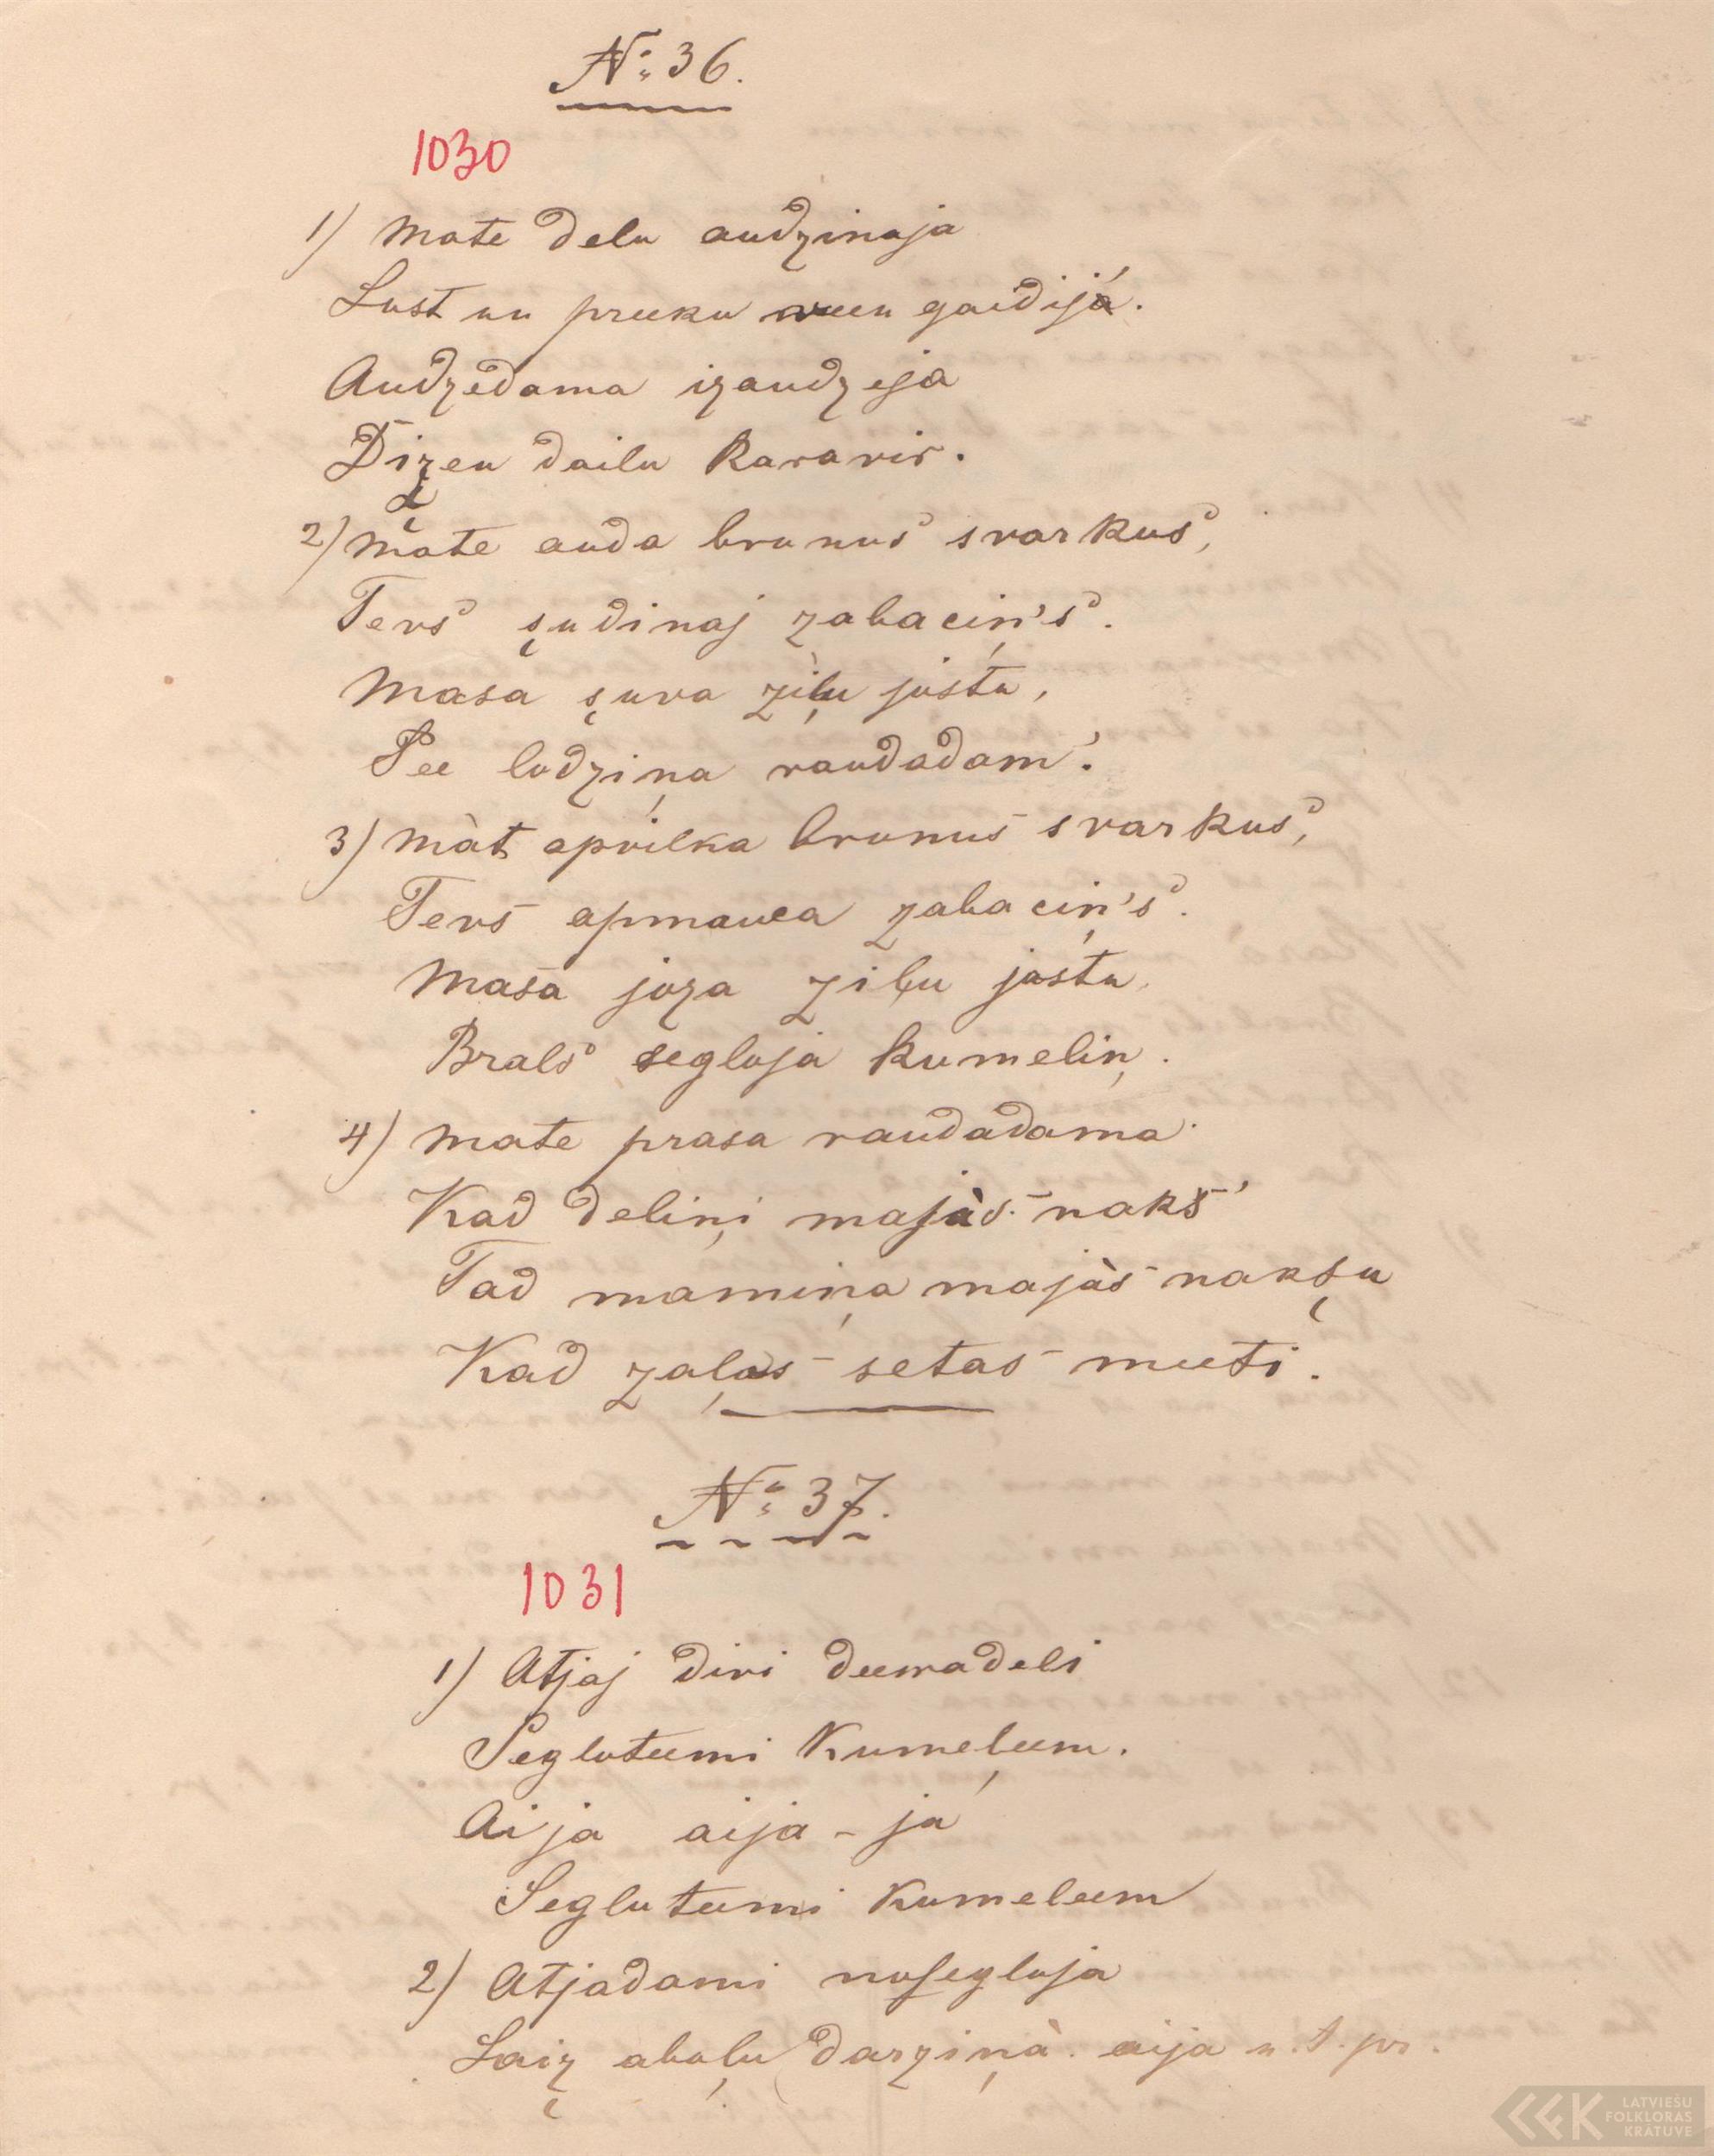 No 36.
1030
1) Mate delu audzinaja
Lust un preeku ween gaidija.
Audzedama izaudzeja
Dizen dailu karavir.
2) Mate auda brunus svarkus,
Tevs şudinaj zabaciņ's.
Masa şuva zilu justu,
Pee lodziņa raudadam'.
3) Màt apvilka brunus svarkus,
Tevs apmauca zabaciņ's.
Masa joza ziļu jostu,
Brals segloja kumeliņ.
4) Mate prasa raudadama
Kad deliņi majàs naks'
Tad mamiņa majàs nakşu
Kad zaļas setas meeti.
No 37.
1031
1) Atjaj divi deewadeli
Segloteemi kumeļeem.
Aija aija-ja
Segluteemi kumeleem
2) Atjadami nosegloja
Laiz aboļu darziņà. aija u.t.pr.
LATVIEŠU
FOLKLORAS
KRĀTUVE